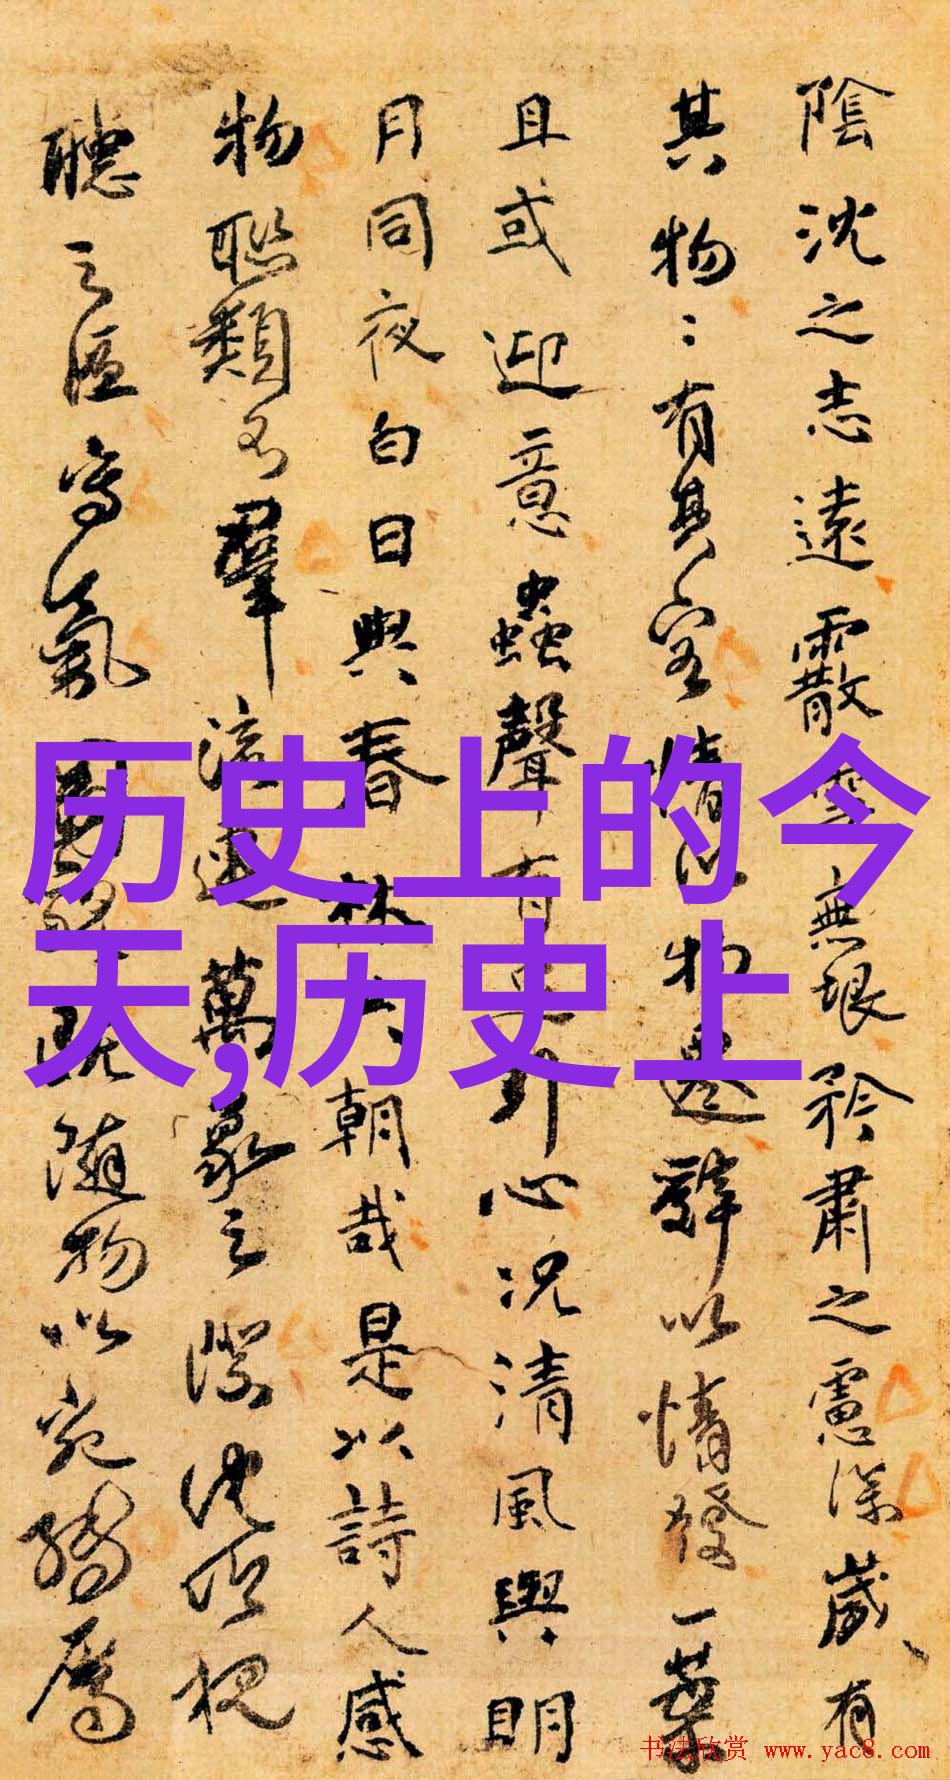 陰沈之志遠霰雪無垠矜肅之慮深歲有
其物物有其容情以物遷辭以情發一葉
且或迎意蟲聲有足引心況清風與明
月同夜白日與春林共朝哉是以詩人感
物聯類不窮流連萬象之際沈吟視
聽之區寫氣圖貌既隨物以宛轉屬
历史上的今
天,历史上
书法欣赏 www.yac8.com